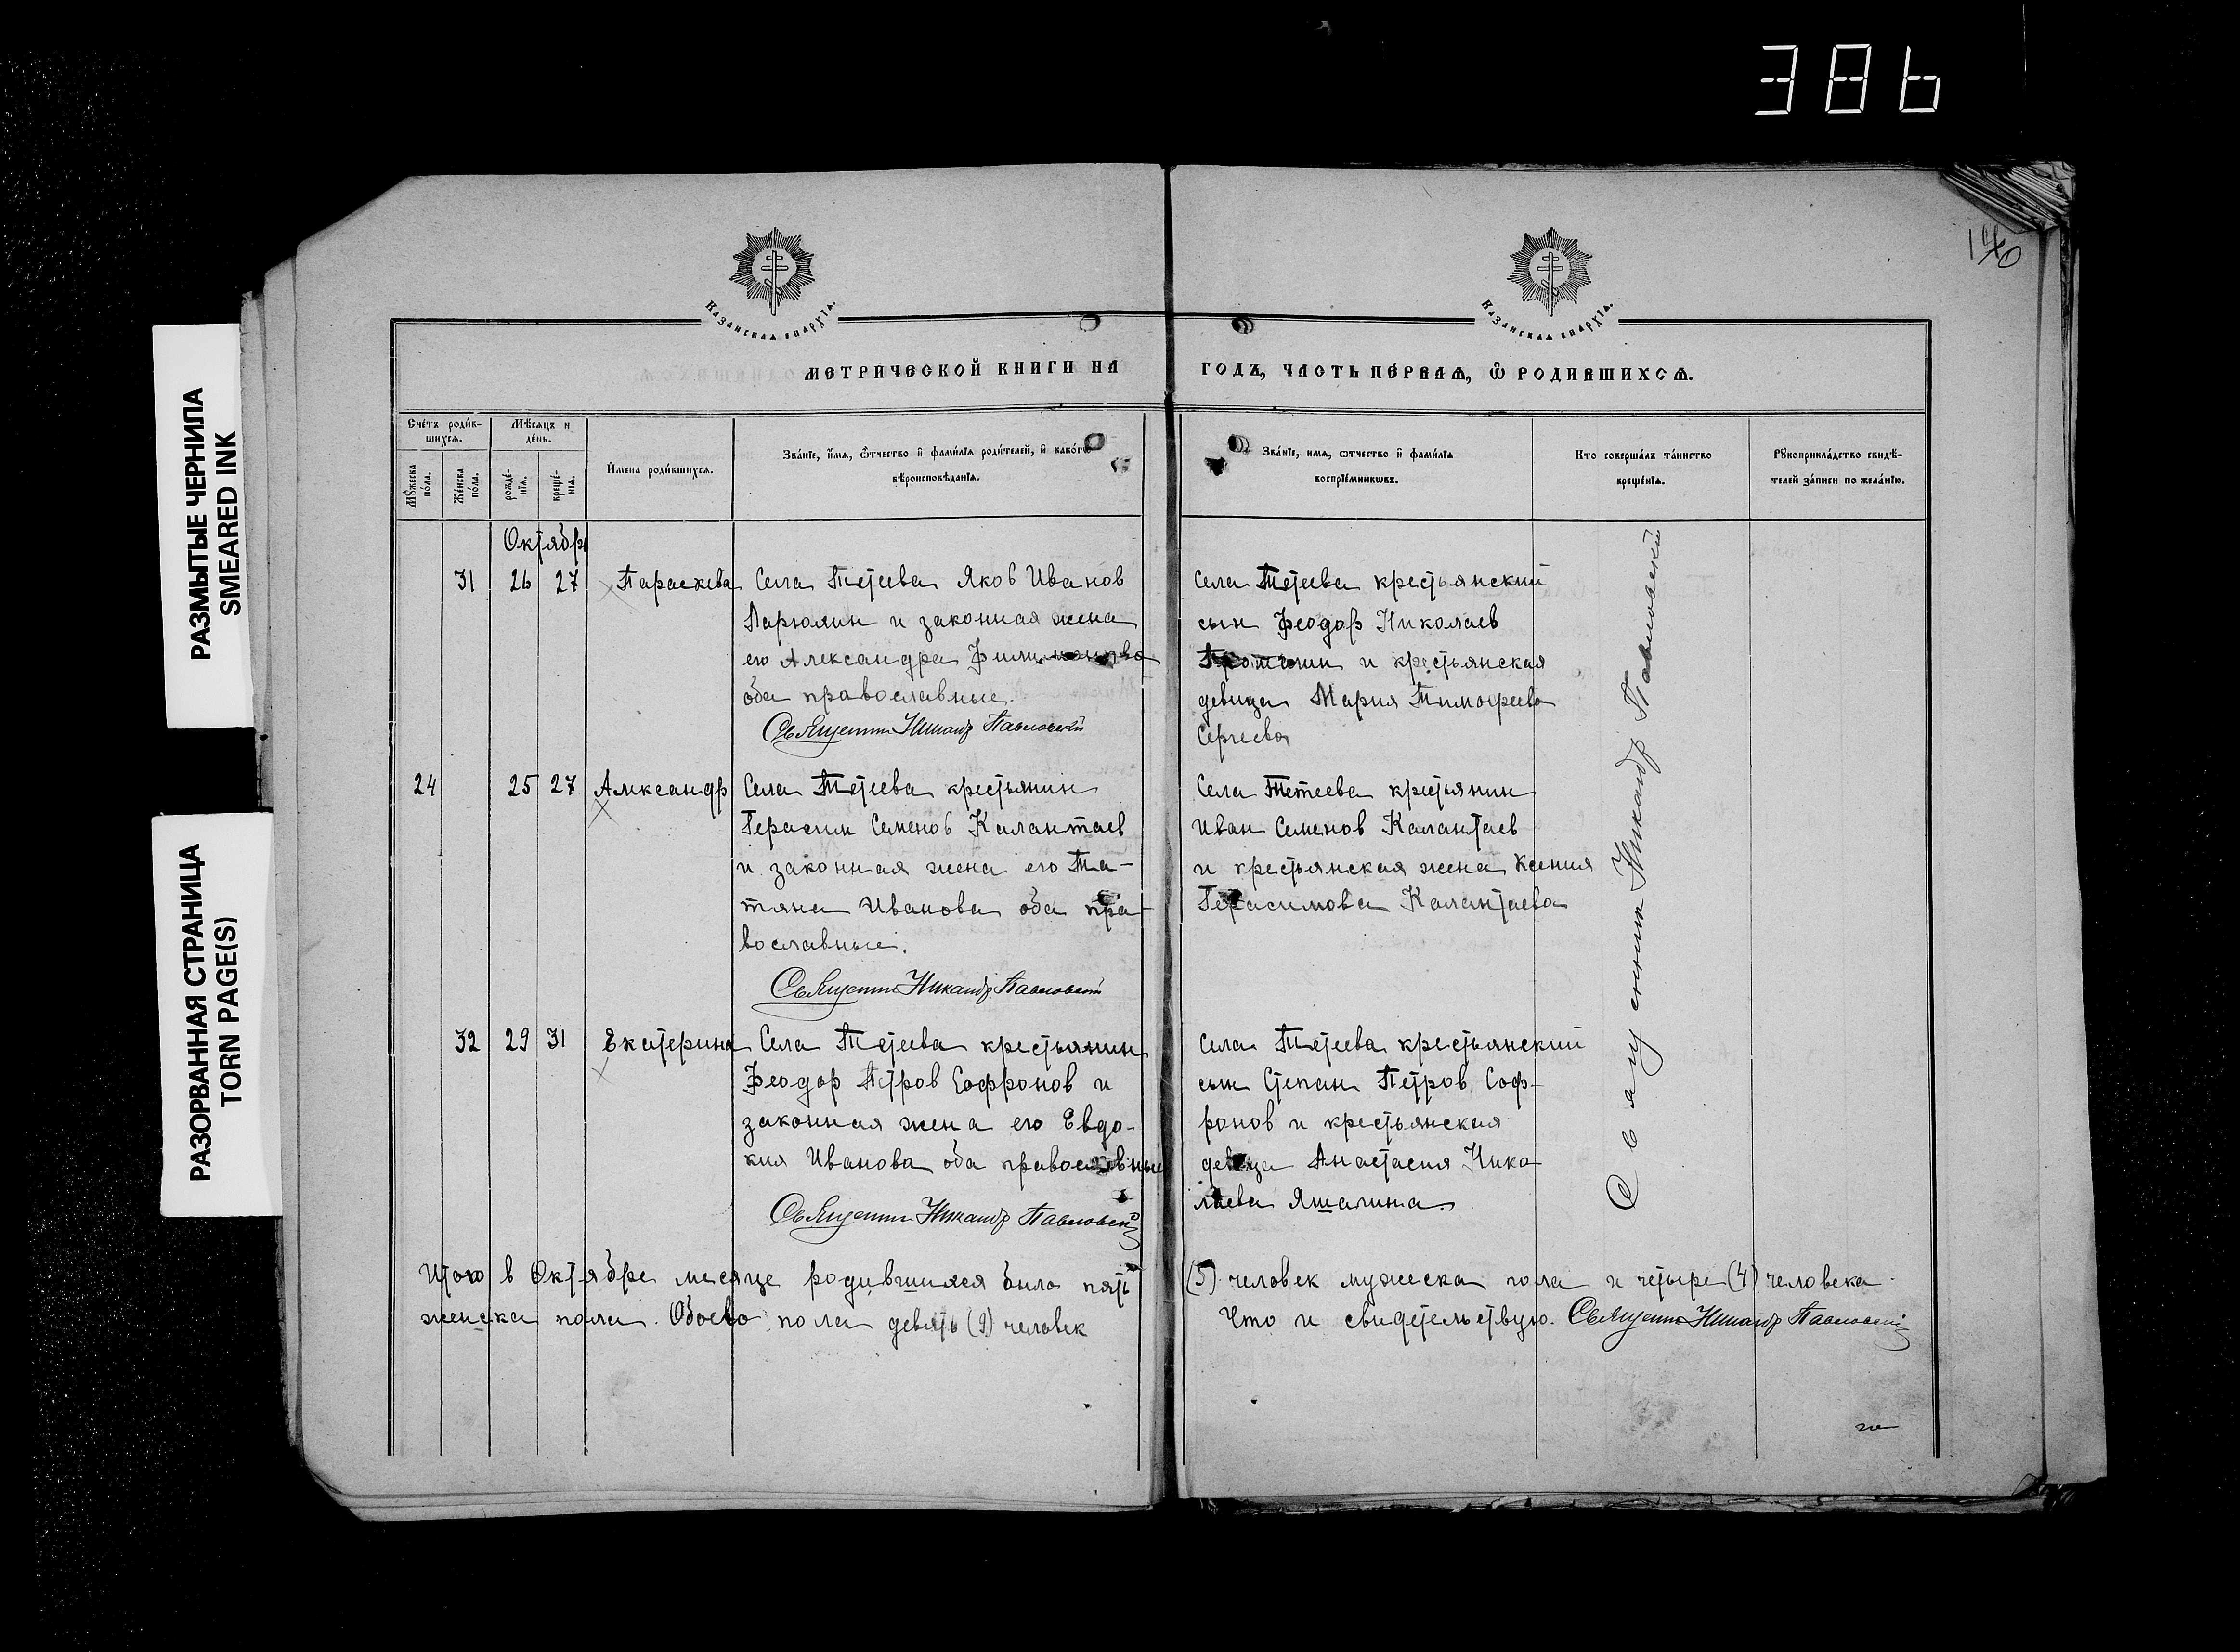 386
РАЗМЫТЫЕ ЧЕРНИЛА
SMEARED INK
РАЗОРВАННАЯ СТРАНИЦА
TORN PAGE(S)
Казанская епархїа.
Казанская епархїа.
МЕТРИЧЕСКОЙ КНИГИ НА
ГОДЪ, ЧАСТЬ ПЕРВАЯ, Ѿ РОДИВШИХСЯ.
Счетъ родив-
шихся.
Мѣсяцъ и
день.
Мꙋжеска
пола.
Женска
пола.
рожде-
нїя.
креще-
нїя.
Имена родившихся.
Званїе, имя, ѿтчество и фамилїя родителей, и какогѡ
вѣроисповѣданїя.
Званїе, имя, ѿтчество и фамилїя
воспрїемникѡвъ.
Кто совершалъ таинство
крещенїя.
Рꙋкоприкладство свидѣ-
телей записи по желанїю.
Октябрь
31 26 27 Параскева
Села Тетеева Яков Иванов
Ларюлин и законная жена
его Александра
оба православные.
Священник Никандр Павловский
Села Тетеева крестьянский
сын Феодор Николаев
и крестьянская
девица Мария Тимофеева
Сергеева
24 25 27 Александр
Села Тетеева крестьянин
Герасим Семенов Калантаев
и законная жена его Та-
тяна Иванова оба пра-
вославные.
Священник Никандр Павловский
Села Тетеева крестянин
Иван Семенов Калантаев
и крестьянская жена Ксения
Герасимова Калантаева
32 29 31 Екатерина
Села Тетеева крестьянин
Феодор Петров Софронов и
законная жена его Евдо-
кия Иванова оба православные
Священник Никандр Павловский
Села Тетеева крестьянский
сын Степан Петров Соф-
ронов и крестьянская
девица Анастасия Нико-
лаева Яшалина.
Священник Никандр Павловский
Итого в Октябре месяце родившихся было пять (5) человек мужеска пола и четыре (4) человека
женска пола. Обоего пола девять (9) человек Что и свидетельствую. Священник Никандр Павловский